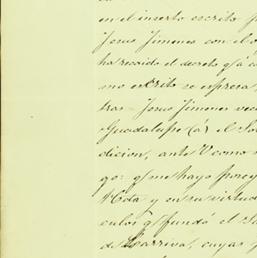 en el inserto escrito
Jesus Jimenes con el
ha recaido el decreto q.
mo escrito se espresa,
tras - Jesus Jimenes vec
Guadalupe
dicion, ante V como
go: q me hayo
Mota y en su virtud
culos q fundó el
de Larriva, cuyas